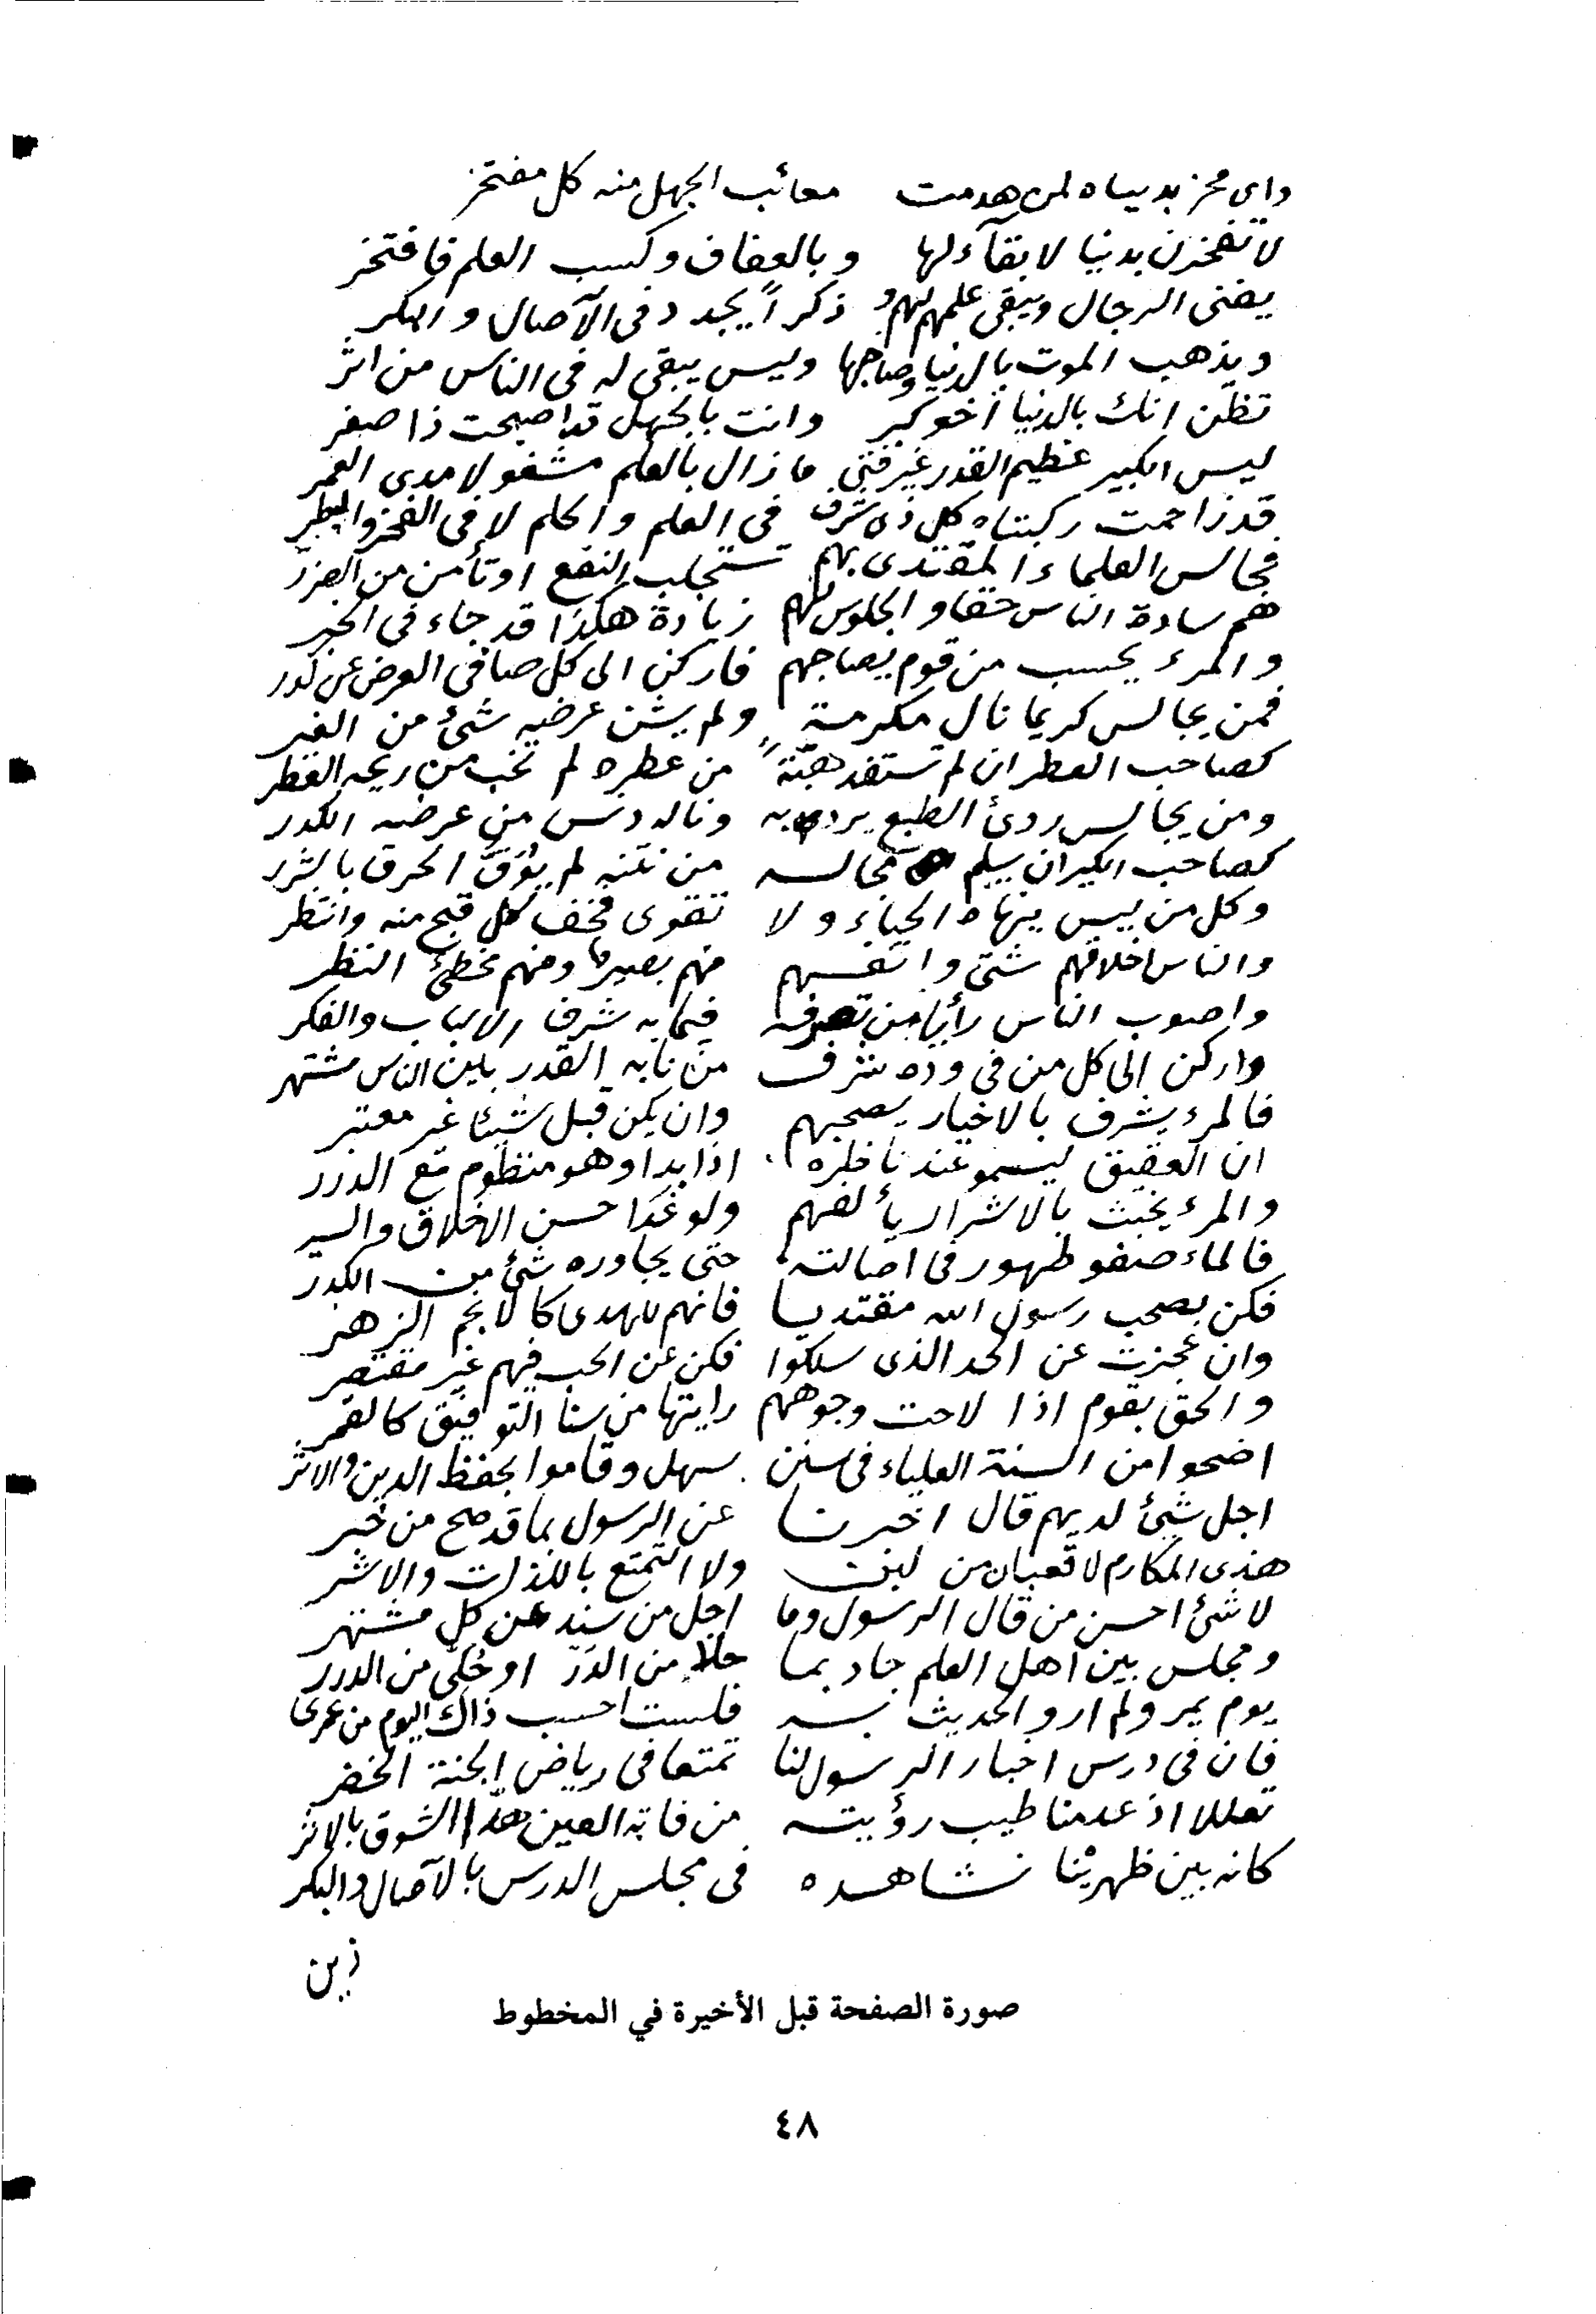 واى فخر بدنياه لمن هدمت معائب الجهل منه كل مفتخر
لا تفخرن بدنيا لا بقآء لها وبالعفاف وكسب العلم فافتخر
يفنى الرجال ويبقى علمهم لهمو ذكراً يجدد فى الآصال والبكر
ويذهب الموت بالدنيا وصاحبها وليس يبقى له فى الناس من اثر
تظن انك بالدنيا أخو كبر وانت بالجهل قد اصبحت ذا صغر
ليس الكبير عظيم القدر غير فتى ما زال بالعلم مشغولا مدى العمر
قد زاحمت ركبتاه كل ذى شرف فى العلم والحلم لا فى الفخر والبطر
فجالس العلماء المقتدى بهم تستجلب النفع او تأمن من الضرر
هم سادة الناس حقا والجلوس لهم زيادة هكذا قد جاء فى الخبر
والمرء يحسب من قوم يصاحبهم فاركن الى كل صافى العرض عن كدر
فمن يجالس كريما نال مكرمة ولم يشن عرضه شئ من الغير
كصاحب العطر ان لم تستفد هبةً من عطره لم تخب من ريحه العطر
ومن يجالس ردئ الطبع يرد به وناله دنس من عرضه الكدر
كصاحب الكير ان يسلم مجالسه من نتنه لم يُوَقَّ الحرق بالشرر
وكل من ليس ينهاه الحياء ولا تقوى فخف كل قبح منه وانتظر
والناس اخلاقهم شتى وانفسهم منهم بصير ومنهم مخطئ النظر
واصوب الناس رأيا من تصرفه فيما به شرف الالباب والفكر
واركن إلى كل من فى وده شرف من نابه القدر بين الناس مشتهر
فالمرء يشرف بالاخيار يصحبهم وان يكن قبل شيئا غير معتبر
ان العقيق ليسمو عند ناظره اذا بدا وهو منظوم مع الدرر
والمرء يخبث بالاشرار يألفهم ولو غدا حسن الاخلاق والسير
فالماء صفو طهور فى اصالته حتى يجاوره شئ من الكدر
فكن بصحب رسول الله مقتديا فانهم للهدى كالانجم الزهر
وان عجزت عن الحد الذى سلكوا فكن عن الحب فيهم غير مقتصر
والحق بقوم اذا لاحت وجوههم رايتها من سنا التوفيق كالقمر
اضحوا من السنة العلياء فى سنن سهل وقاموا بحفظ الدين والاثر
اجل شئ لديهم قال اخبرنا عن الرسول بما قد صح من خبر
هذى المكارم لا قعبان من لبن ولا التمتع باللذات والاشر
لا شئ احسن من قال الرسول وما اجل من سند عن كل مشتهر
ومجلس بين اهل العلم جاد بما حلا من الدر او حُلّى من الدرر
يوم يمر ولم ارو الحديث به فلست احسب ذاك اليوم من عمرى
فان فى درس اخبار الرسول لنا تمتعا فى رياض الجنة الخضر
تعللا اذ عدمنا طيب رؤيته من فاته العين هدّ الشوق بالاثر
كانه بين ظهرينا نشاهده فى مجلس الدرس بالآصال والبكر
زين
صورة الصفحة قبل الأخيرة في المخطوط
٤٨